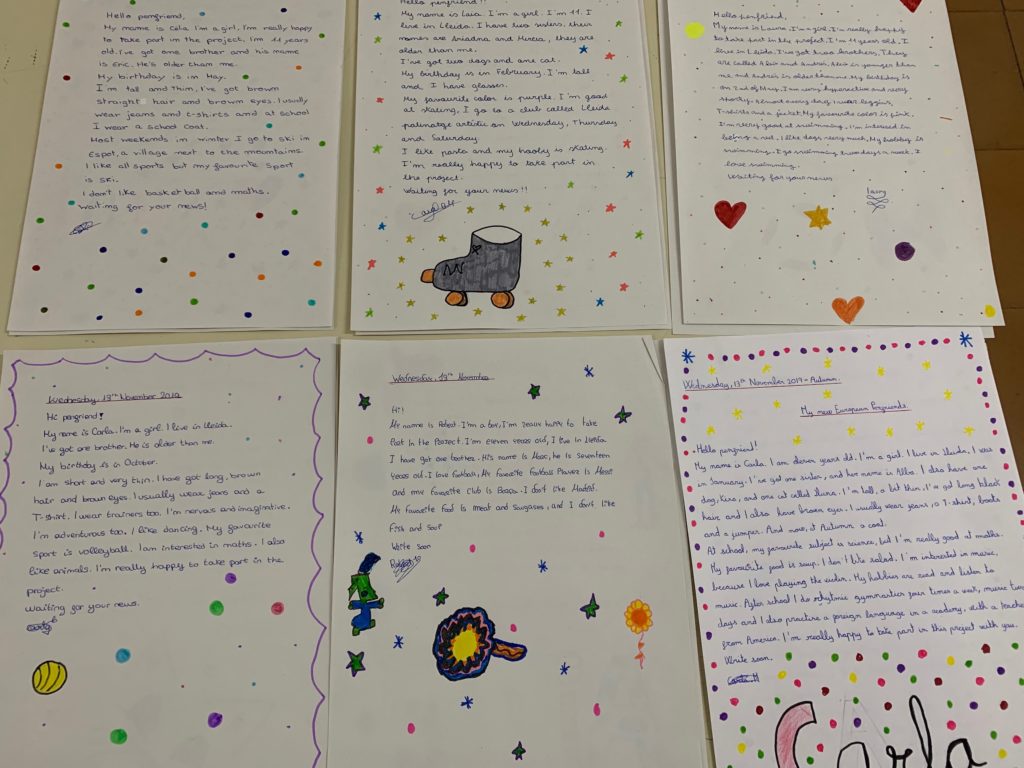 Hello penfriend,
My name is Cela. I'm a girl, I'm really happy
to take part in the project, I'm 11 years
old. I've got one brother and his mame
is Eric. He's older than me.
My birthday is in May.
I'm tall and thin, I've got brown
straight hair and brown eyes. I usually
wear jeans and t-shirts and at school
I wear a school coat.
Most weekends in winter I go to ski in
Espot, a village next to the mountains.
I like all sports but my favourite sport
is ski.
I don't like basketball and maths.
Waiting for your news!
Hello penfriend!!
My name is Laia. I'm a girl. I'm 11. I
live in Lleida. I have two sisters, their
names are Ariadna and Mercia, they are
older than me.
I've got two dogs and one cat.
My birthday is in February. I'm tall
and, I have glasses.
My favourite color is purple. I'm good
at skating, I go to a club called Lleida
patinatge artistic on Wednesday, Thursday
and Saturday.
I like pasta and my hobby is skating.
I'm really happy to take part in
the project.
Waiting for your news!!
Hello penfriend.
My name is Laura, I'm a girl. I'm really happy
to take part in my project, I'm 11 years old. I
live in Lleida. I've got two brothers, They
are called Aleix and Andreu. Aleix is younger than
me and Andreu is older than me. My birthday is
on 2nd of May. I am very hyperactive and very
Almost every day, I wear leggins,
T-shirts and a jacket. My favourite color is pink.
I'm very good at swimming. I'm interested in
being a vet. I like dogs very much. My hobby is
swimming. I go swimming two days a week, I
love swimming.
Waiting for your news
Wednesday, 13th November 2019
Hi penfriend!
My name is Carla. I'm a girl. I live in Lleida.
I've got one brother. He is older than me.
My birthday is in October.
I am short and very thin. I have got long, brown
hair and brown eyes. I usually wear jeans and a
T-shirt. I wear trainers too. I'm nervous and imaginative.
I'm adventurous too. I like dancing. My favourite
sport is volleyball. I am interested in maths. I also
like animals. I'm really happy to take part in the
project.
Waiting for your news.
Wednesday, 13th November
Hi!
My name is Robert. I'm a boy, I'm really happy to take
Part In the Project. I'm eleven years old, I live in Lleida
I have got one brother. His name is Marc, he is seventeen
years old. I love football, My favorite football Player is Messi
and my favorite club is Barça. I don't like Madrid.
My favorite food is meat and sausages, and I don't like
Fish and soup
Write soon
Wednesday, 13th November 2019 - Autumn.
My new European Penfriends.
Hello penfriend!
My name is Carla. I am eleven years old. I'm a girl. I live in Lleida, I was
in January. I've got one sister, and her name is Alba. I also have one
dog, Kira, and one cat called Lluna. I'm tall, a bit thin. I've got long black
hair and I also have brown eyes. I usually wear jeans, a T-shirt, boots
and a jumper. And now, it Autumn is cool.
At school, my favourite subject is science, but I'm really good at maths.
My favourite food is soup. I don't like salad. I'm interested in music,
because I love playing the violin. My hobbies are read and listen to
music. After school I do rhythmic gymnastics four times a week, music two
days and I also practice a foreign language in a academy, with a teacher
from America. I'm really happy to take part in this project with you.
Write soon.
Carla.M
Carla